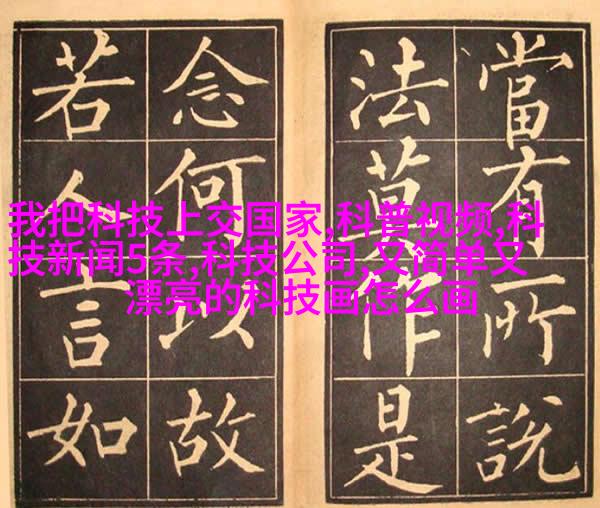 當有所說
法莫作是
念何以故
若人言如
我把科技上交国家,科普视频,科
技新闻5条,科技公司,又简单又
漂亮的科技画怎么画